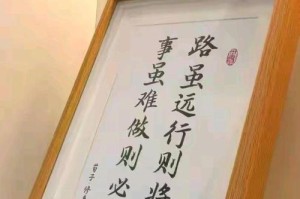 路虽远行则将
事虽难做则必
荀子